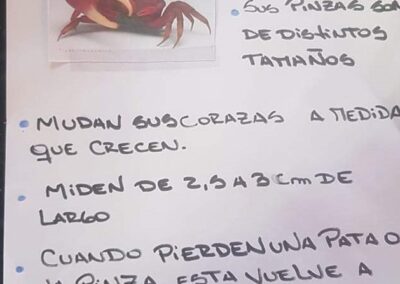 SUS PINZAS SON
DE DISTINTOS
TAMAÑOS
MUDAN SUS CORAZAS A MEDIDA
QUE CRECEN.
MIDEN DE 2,5 A 3 cm DE
LARGO
CUANDO PIERDEN UNA PATA O
PINZA, ESTA VUELVE A